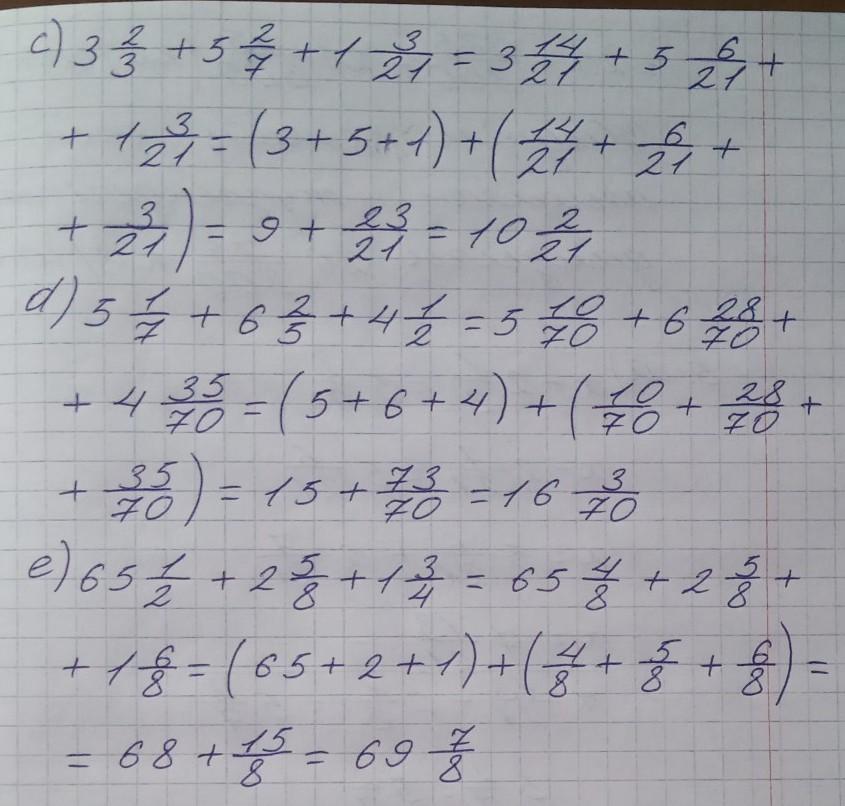 c) 3 2/3 + 5 2/7 + 1 3/21 = 3 14/21 + 5 6/21 +
+ 1 3/21 = (3 + 5 + 1) + (14/21 + 6/21 +
+ 3/21) = 9 + 23/21 = 10 2/21
d) 5 1/7 + 6 2/5 + 4 1/2 = 5 10/70 + 6 28/70 +
+ 4 35/70 = (5 + 6 + 4) + (10/70 + 28/70 +
+ 35/70) = 15 + 73/70 = 16 3/70
e) 65 1/2 + 2 5/8 + 1 3/4 = 65 4/8 + 2 5/8 +
+ 1 6/8 = (65 + 2 + 1) + (4/8 + 5/8 + 6/8) =
= 68 + 15/8 = 69 7/8